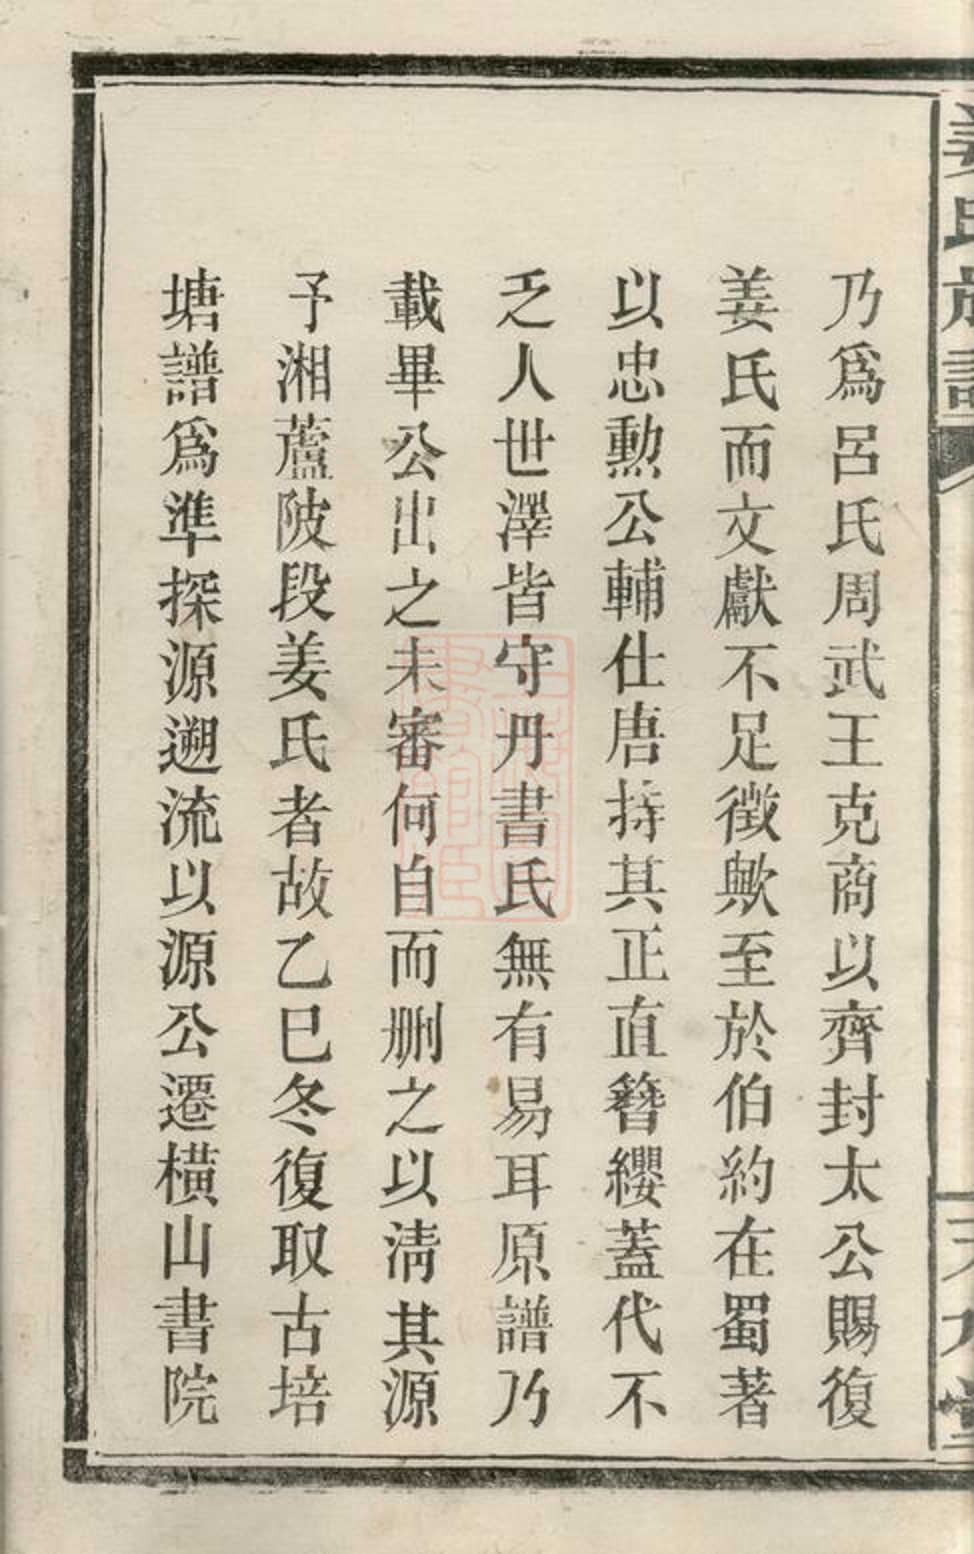 姜氏族譜
乃爲呂氏周武王克商以齊封太公賜復
姜氏而文獻不足徵歟至於伯約在蜀著
以忠勲公輔仕唐持其正直簪纓蓋代不
乏人世澤皆守丹書氏無有易耳原譜乃
載畢公出之未審何自而刪之以清其源
予湘蘆陂段姜氏者故乙巳冬復取古培
塘譜爲準探源遡流以源公遷橫山書院